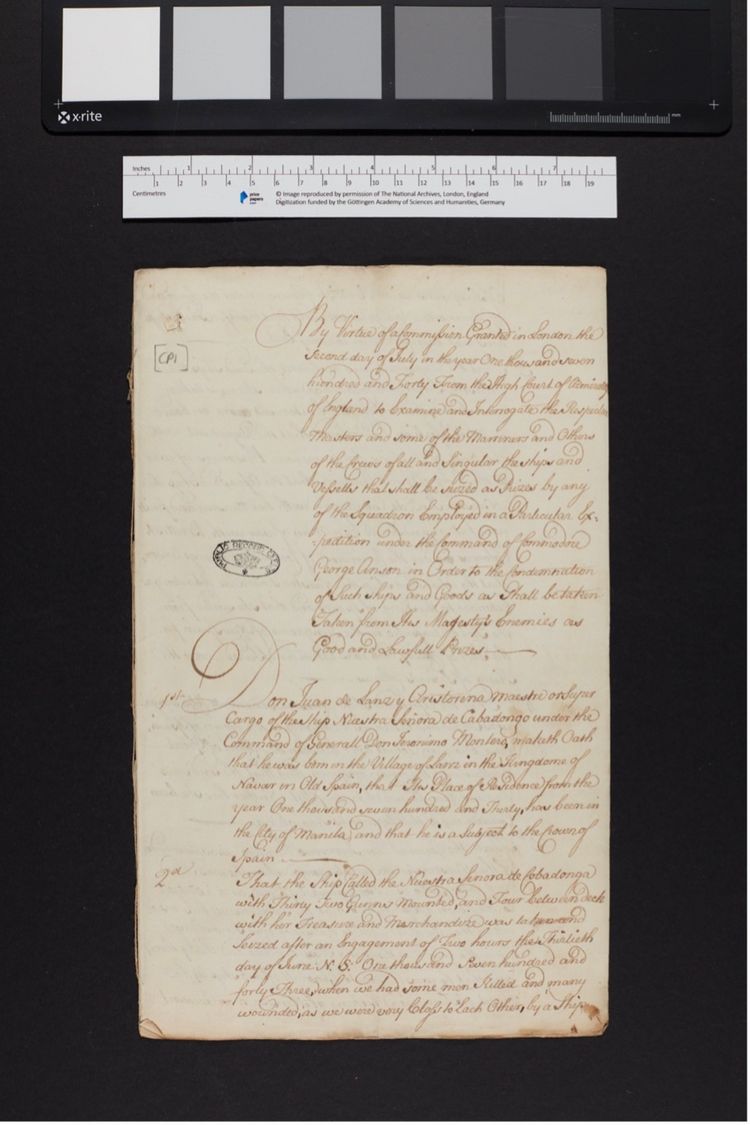 x-rite
mm
Inches
1 2 3 4 5 6 7
1 2 3 4 5 6 7 8 9 10 11 12 13 14 15 16 17 18 19
Centimetres
prize papers
© Image reproduced by permission of The National Archives, London, England
Digitization funded by the Göttingen Academy of Sciences and Humanities, Germany
[CP1]
By Virtue of a Commission Granted in London the
Second day of July in the year One thousand seven
hundred and Forty From the High Court of Admiralty
of England to Examine and Interrogate the Respective
Masters and some of the Marriners and Others
of the Crews of all and Singular the ships and
Vessells that shall be seized as Prizes by any
of the Squadron Employed in a Particular Ex-
pedition under the Command of Commodore
George Anson in Order to the Condemnation
of Such Ships and Goods as Shall be taken
Taken from His Majesty's Enemies as
Good and Lawfull Prizes.
1st
Don Juan de Lanz y Aristorena Maestre or Super
Cargo of the Ship Nuestra Señora de Cabadongo under the
Command of Generall Don Jeronimo Montero, maketh Oath
that he was born in the Village of in the Kingdome of
Navar in Old Spain, that His Place of Residence from the
year One thousand seven hundred and Thirty, has been in
the City of Manila, and that he is a Subject to the Crown of
Spain
2d
That the Ship Called the Nuestra Senora de Cobadonga
with Thirty Two Gunns Mounted, and Four between deck
with her Treasure and Merchandize was taken and
Seized after an Engagement of Two hours the Thirtieth
day of June N. S. One thousand Seven hundred and
forty Three, when we had some men Killed and many
wounded, as we were very Close to Each Other, by a Ship